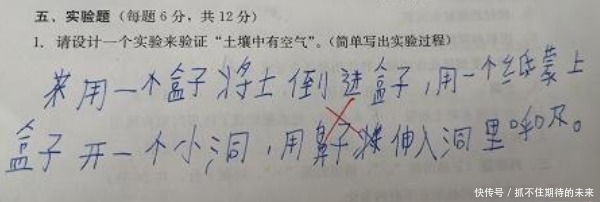 五、实验题（每题6分，共12分）
1. 请设计一个实验来验证“土壤中有空气”。（简单写出实验过程）
采用一个盒子将土倒进盒子，用一个纸蒙上
盒子开一个小洞，用鼻子来伸入洞里呼及。
快传号／抓不住期待的未来